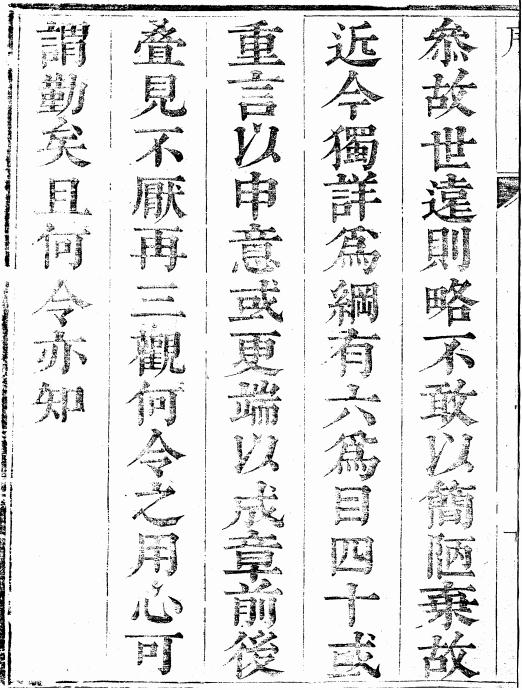 叅故世遠則略不敢以簡陋棄故
近今獨詳爲綱有六爲目四十或
重言以申意或更端以成章前後
叠見不厭再三觀何令之用心可
謂勤矣且何令亦知